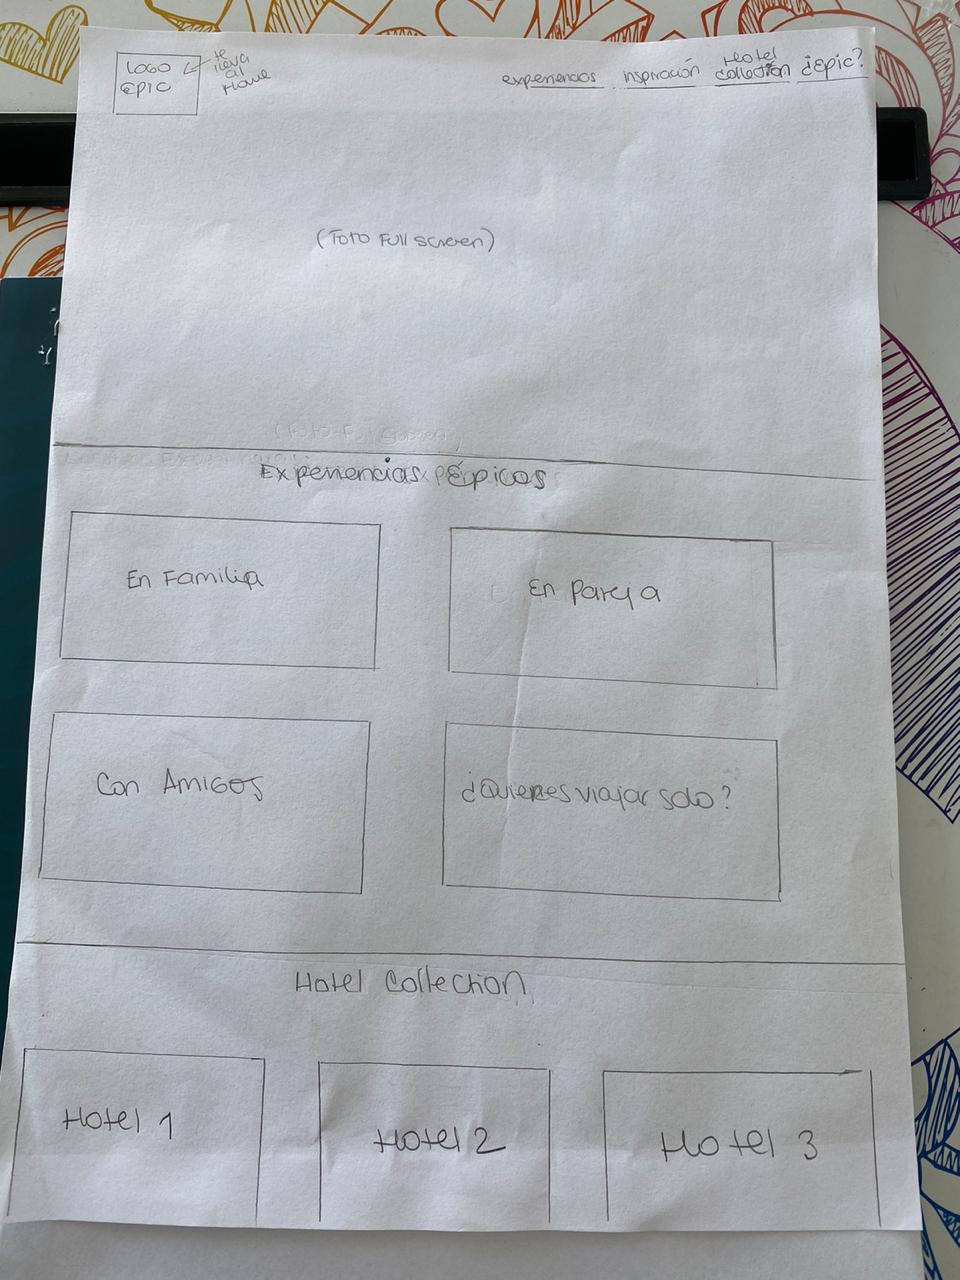 LOGO
EPIC
te
lleva
al
Home
experiencias inspiración Hotel collection ¿épic?
(Foto Full screen)
(Foto Full Screen)
Experiencias Épicas
En Familia
En Pareja
Con Amigos
¿Quieres viajar solo?
Hotel Collection
Hotel 1
Hotel 2
Hotel 3